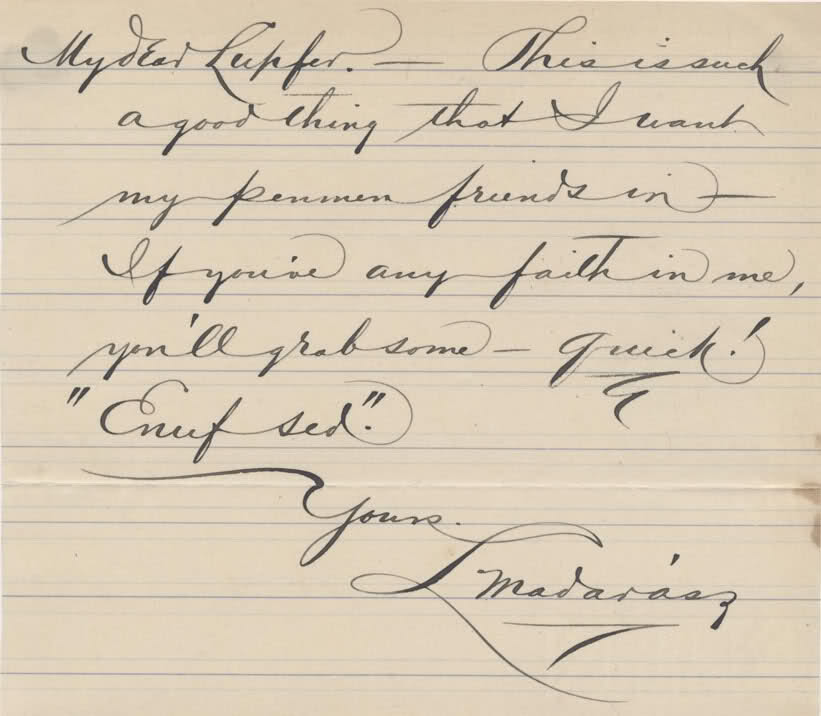 My dear Lupfer. — This is such
a good thing that I want
my penmen friends in —
If you've any faith in me,
you'll grab some — quick!
"Enuf sed".
Yours.
L Madarász